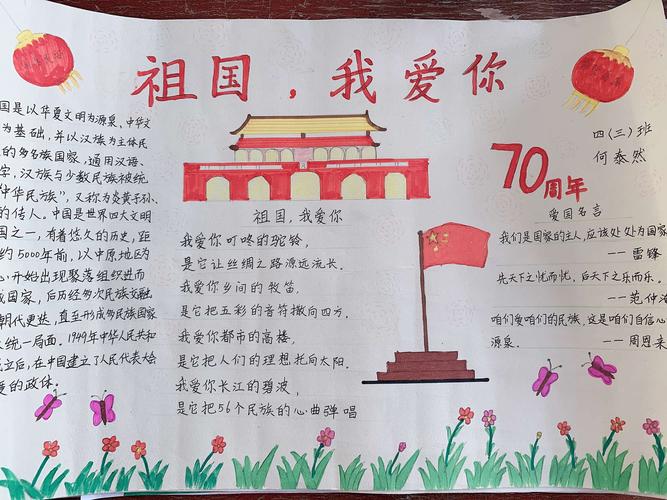 祖国，我爱你
国是以华夏文明为源泉、中华文
为基础，并以汉族为主体民
的多民族国家，通用汉语、
字，汉族与少数民族被统
中华民族”，又称为炎黄子孙、
的传人。中国是世界四大文明
国之一，有着悠久的历史，距
约5000年前，以中原地区为
心开始出现聚落组织进而
成国家，后历经多次民族交融
朝代更迭，直至形成多民族国家
大统一局面。1949年中华人民共和
成立后，在中国建立了人民代表大会
度的政体。
祖国，我爱你
我爱你叮咚的驼铃，
是它让丝绸之路源远流长。
我爱你乡间的牧笛，
是它把五彩的音符撒向四方。
我爱你都市的高楼，
是它把人们的理想托向太阳。
我爱你长江的碧波，
是它把56个民族的心曲弹唱
四(三)班
何泰然
70周年
爱国名言
我们是国家的主人，应该处处为国家
——雷锋
先天下之忧而忧，后天下之乐而乐。
——范仲
咱们爱咱们的民族，这是咱们自信心
源泉。——周恩来